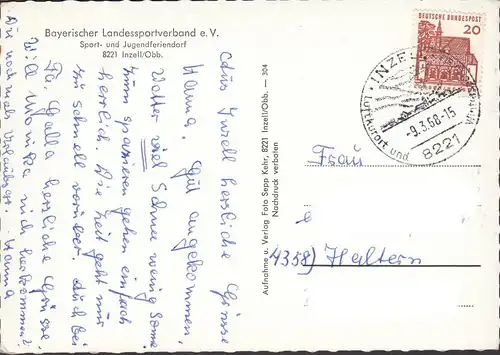 Bayerischer Landessportverband e. V.
Sport- und Jugendferiendorf
8221 Inzell/Obb.
Aus Inzell herzliche Grüsse
Hanna. Gut angekommen,
Wetter viel Schnee wenig Sonne
zum spazieren gehen einfach
herrlich. Die Zeit geht nur
zu schnell vorüber. Auch bei
Fa. Galla herzliche Grüsse
Will Monika nich herkommen?
Du noch mals Urlaubsgr. Hanna
Aufnahme u. Verlag Foto Sepp Kehr, 8221 Inzell/Obb. — 304
Nachdruck verboten
DEUTSCHE BUNDESPOST
20
INZELL
Luftkurort und
-9.3.68-15
8221
Frau
4358) Haltern